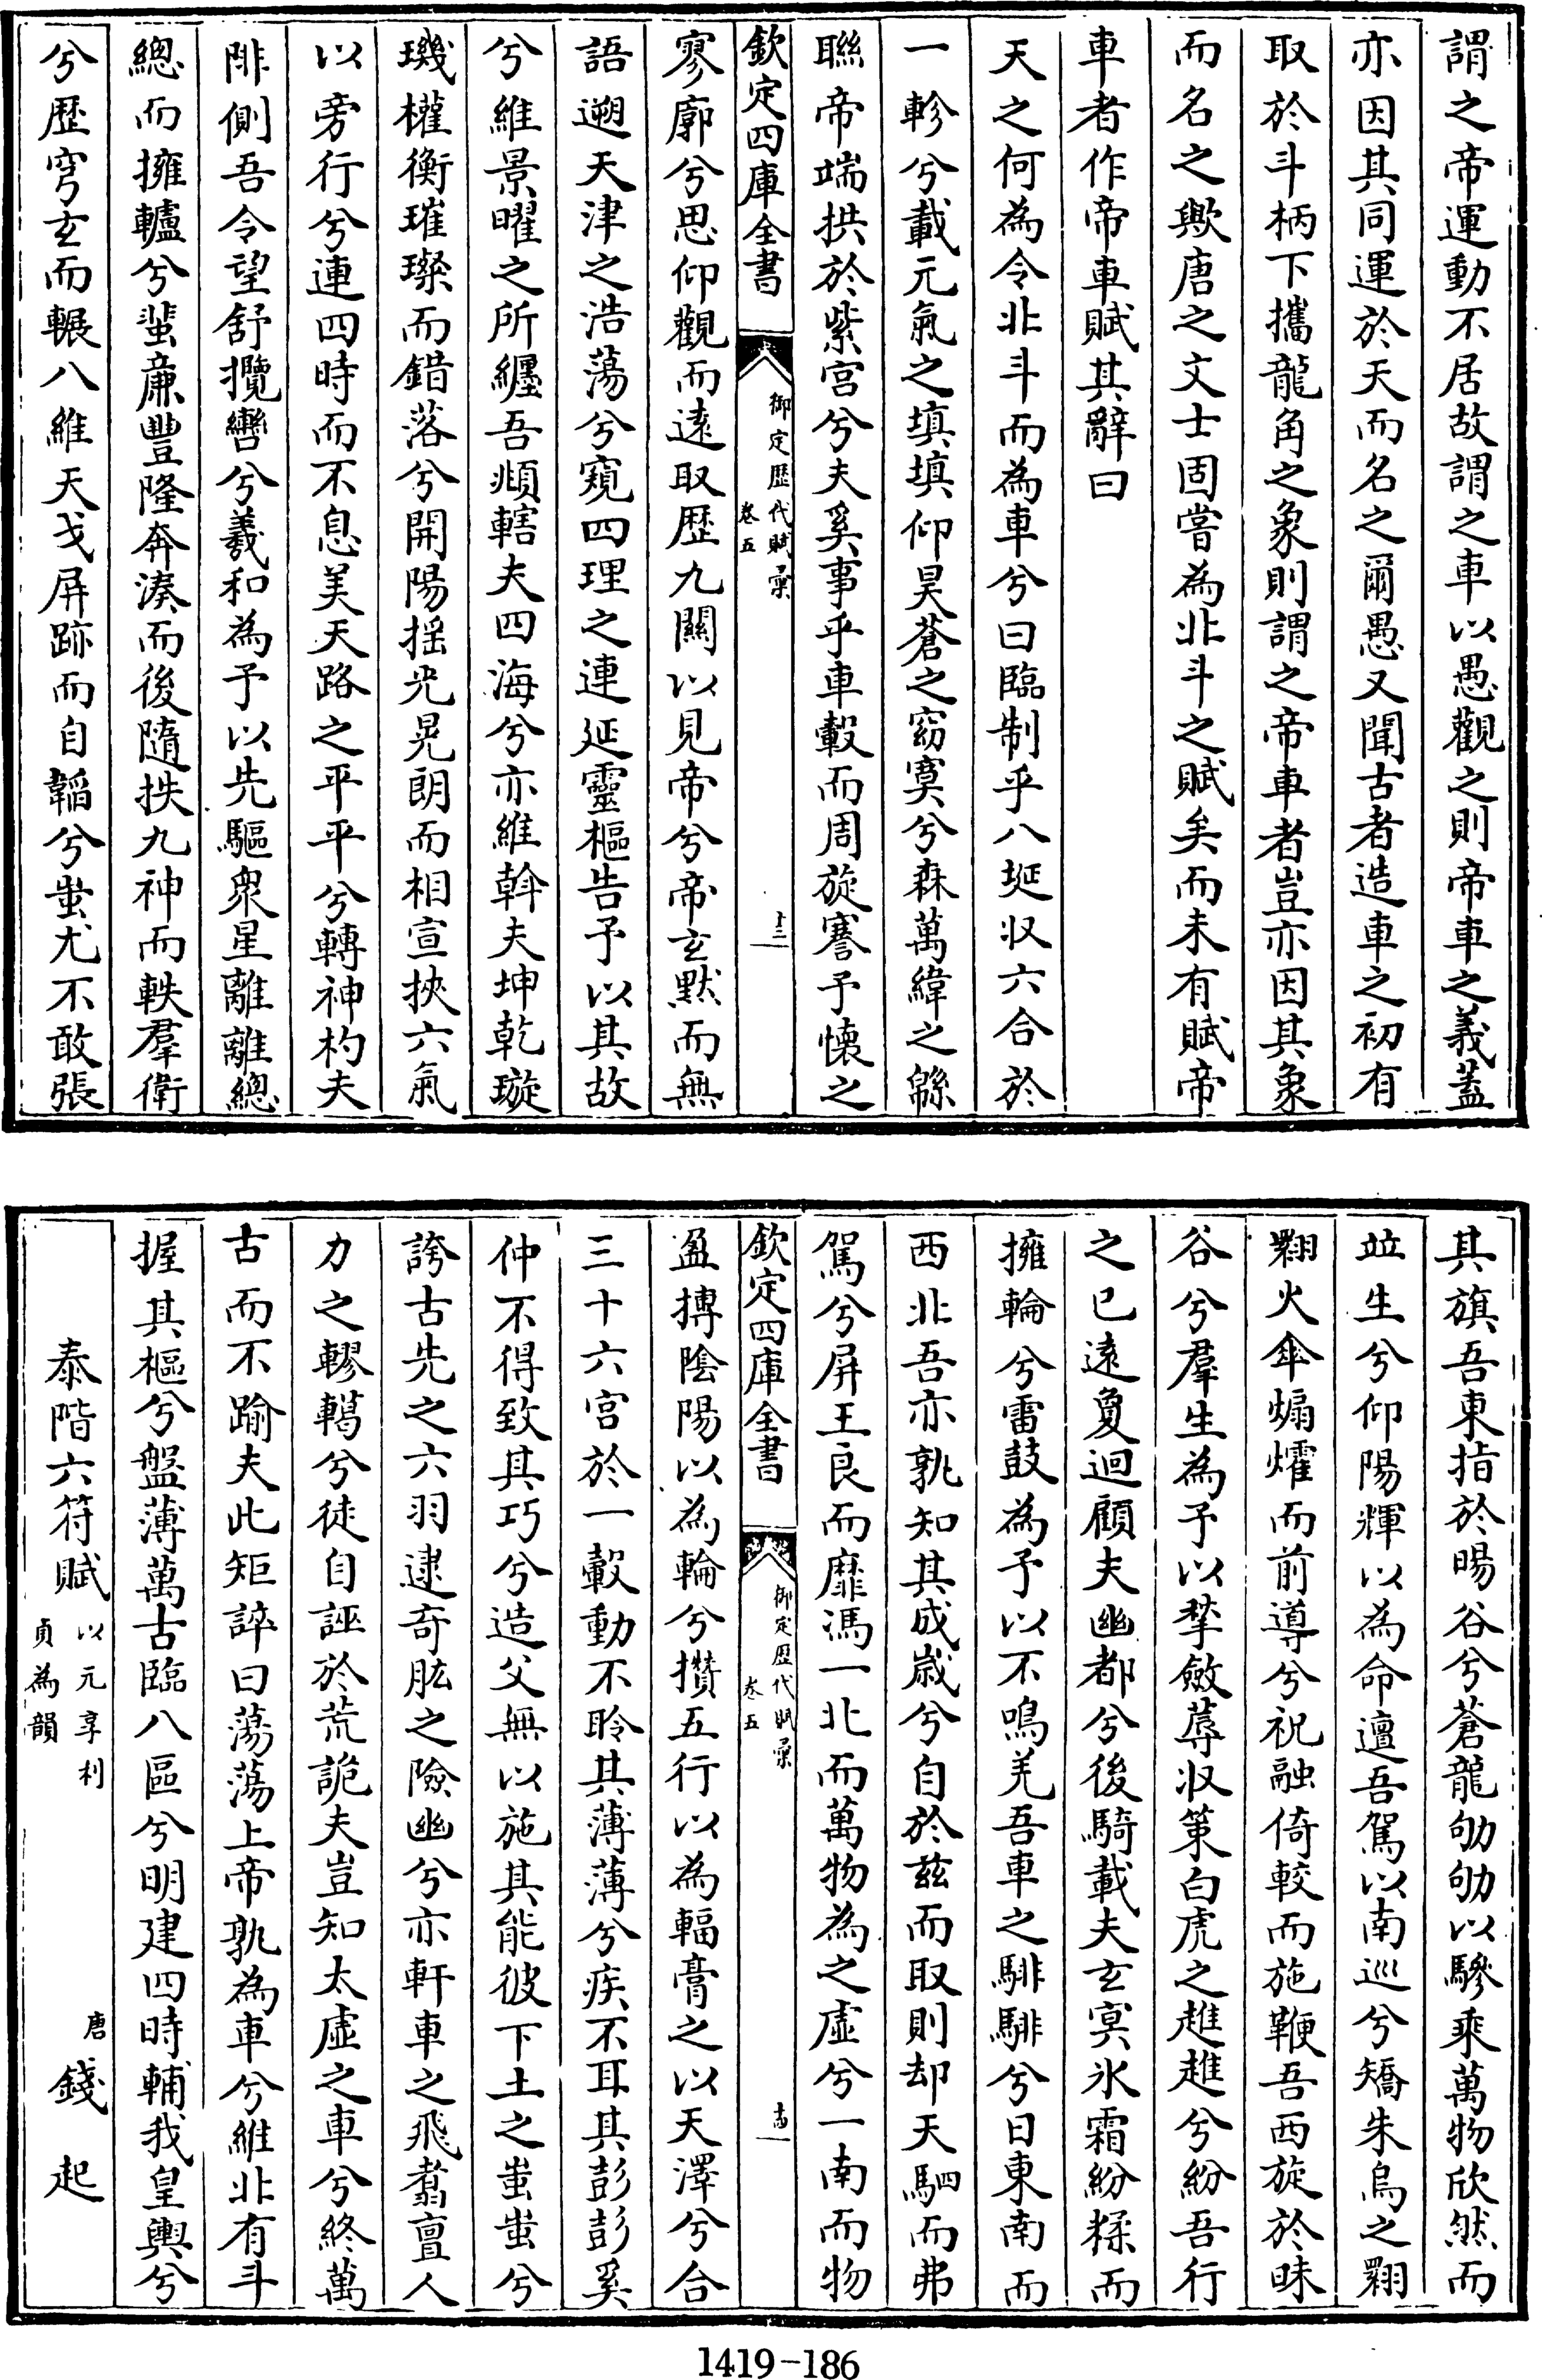 謂之帝運動不居故謂之車以愚觀之則帝車之義蓋
亦因其同運於天而名之爾愚又聞古者造車之初有
取於斗柄下攜龍角之象則謂之帝車者豈亦因其象
而名之歟唐之文士固嘗為北斗之賦矣而未有賦帝
車者作帝車賦其辭曰
天之何為令北斗而為車兮曰臨制乎八埏收六合於
一軫兮載元氣之填填仰昊蒼之窈冥兮森萬緯之緜
聯帝端拱於紫宫兮夫奚事乎車轂而周旋謇予懷之
欽定四庫全書
御定歷代賦彙
卷五
十三
寥廓兮思仰觀而遠取歴九關以見帝兮帝玄默而無
語遡天津之浩蕩兮窺四理之連延靈樞告予以其故
兮維景曜之所纒吾頫轄夫四海兮亦維斡夫坤乾璇
璣權衡璀璨而錯落兮開陽揺光晃朗而相宣挾六氣
以旁行兮連四時而不息美天路之平平兮轉神杓夫
陫側吾令望舒攬轡兮羲和為予以先驅衆星離離總
總而擁轤兮蜚亷豐隆奔湊而後隨抶九神而軼羣衛
兮歴穹玄而輾八維天戈屏跡而自韜兮蚩尤不敢張
其旗吾東指於暘谷兮蒼龍劬劬以驂乘萬物欣然而
竝生兮仰陽輝以為命邅吾駕以南巡兮矯朱鳥之翾
翾火傘煽爚而前導兮祝融倚較而施鞭吾西旋於昧
谷兮羣生為予以揫斂蓐收策白虎之趡趡兮紛吾行
之已遠敻迴顧夫幽都兮後騎載夫玄㝠氷霜紛糅而
擁輪兮雷鼓為予以不鳴羌吾車之騑騑兮日東南而
西北吾亦孰知其成嵗兮自於兹而取則却天駟而弗
駕兮屏王良而靡馮一北而萬物為之虛兮一南而物
欽定四庫全書
御定歷代賦彙
卷五
十四
盈摶陰陽以為輪兮攢五行以為輻膏之以天澤兮合
三十六宫於一轂動不聆其薄薄兮疾不耳其彭彭奚
仲不得致其巧兮造父無以施其能彼下土之蚩蚩兮
誇古先之六羽逮奇肱之險幽兮亦軒車之飛翥亶人
力之轇轕兮徒自誣於荒詭夫豈知太虛之車兮終萬
古而不踰夫此矩誶曰蕩蕩上帝孰為車兮維北有斗
握其樞兮盤薄萬古臨八區兮明建四時輔我皇輿兮
泰階六符賦 以元亨利
貞為韻
唐 錢起
1419-186